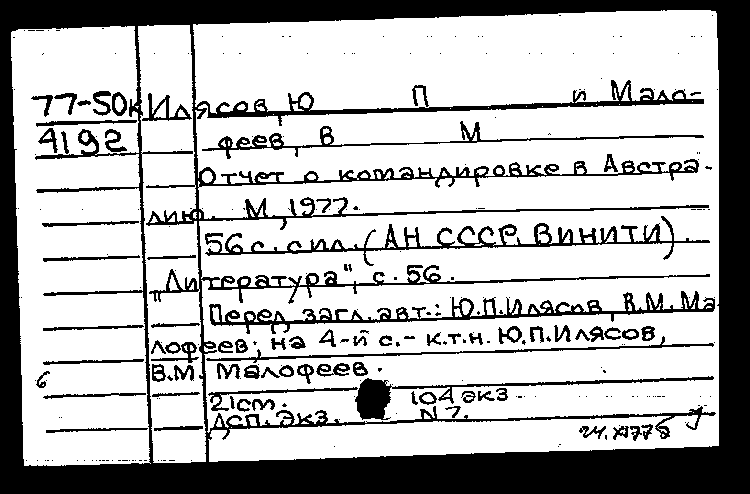 77-50к Илясов, Ю П и Мало-
4192 феев, В М
Отчет о командировке в Австра-
лию. М., 1977.
56 с. с ил. (АН СССР, ВИНИТИ).
"Литература", с. 56.
Перед загл. авт.: Ю.П.Илясов, В.М. Ма
лофеев; на 4-й с.- к.т.н. Ю.П.Илясов,
В.М. Малофеев.
б
21см. 104 экз.
ДСП. Экз. N 7.